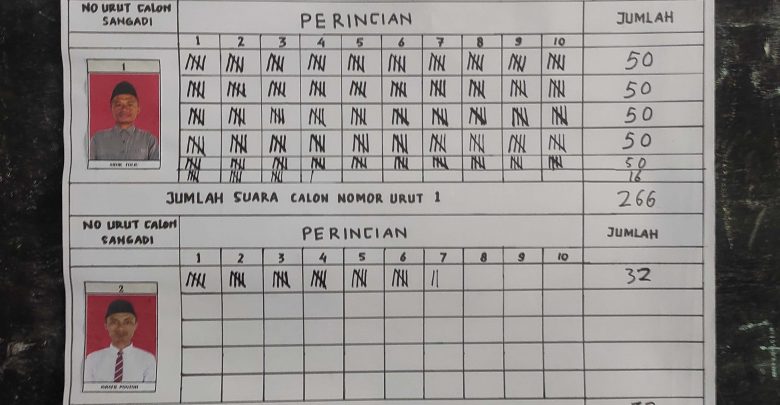 NO URUT CALON SANGADI PERINCIAN JUMLAH
1 2 3 4 5 6 7 8 9 10
1 50
50
50
50
50
16
JUMLAH SUARA CALON NOMOR URUT 1 266
NO URUT CALON SANGADI PERINCIAN JUMLAH
1 2 3 4 5 6 7 8 9 10
2 32